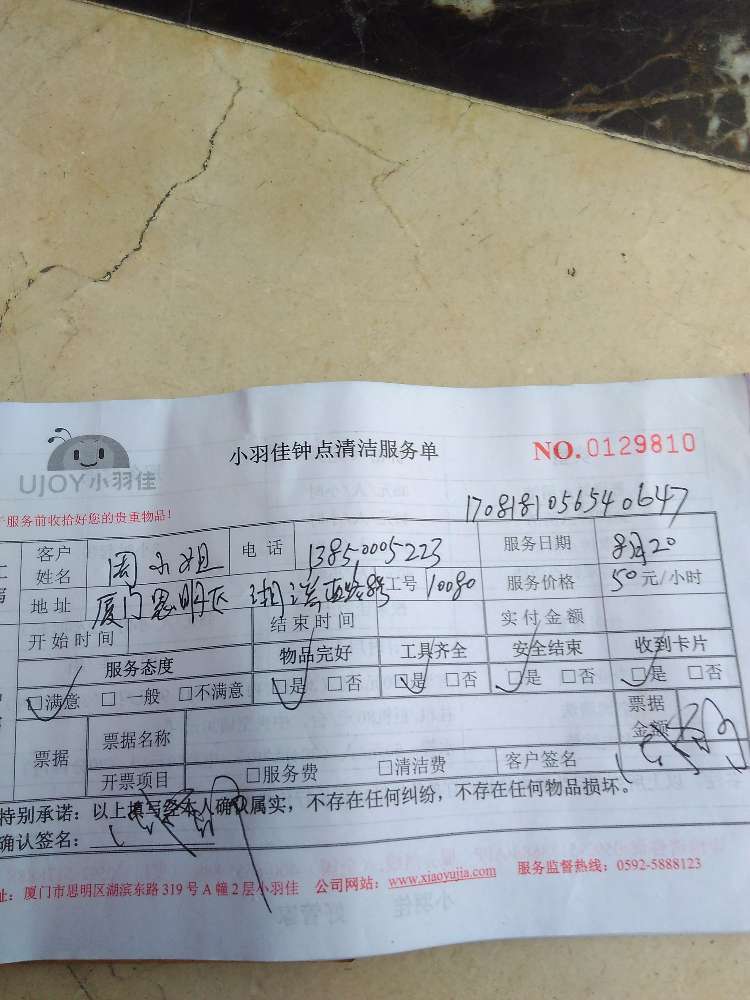 UJOY小羽佳
小羽佳钟点清洁服务单
NO.0129810
服务前收拾好您的贵重物品!
170818105654 0647
客户姓名 周小姐 电话 13850005223 服务日期 8月20
地址 厦门思明区 工号 10080 服务价格 50元/小时
开始时间 结束时间 实付金额
服务态度 物品完好 工具齐全 安全结束 收到卡片
□满意 □一般 □不满意 □是 □否 □是 □否 □是 □否 □是 □否
票据 票据名称 票据金额
开票项目 □服务费 □清洁费 客户签名
特别承诺：以上填写经本人确认属实，不存在任何纠纷，不存在任何物品损坏。
确认签名：
址：厦门市思明区湖滨东路319号A幢2层小羽佳 公司网站：www.xiaoyujia.com 服务监督热线：0592-5888123